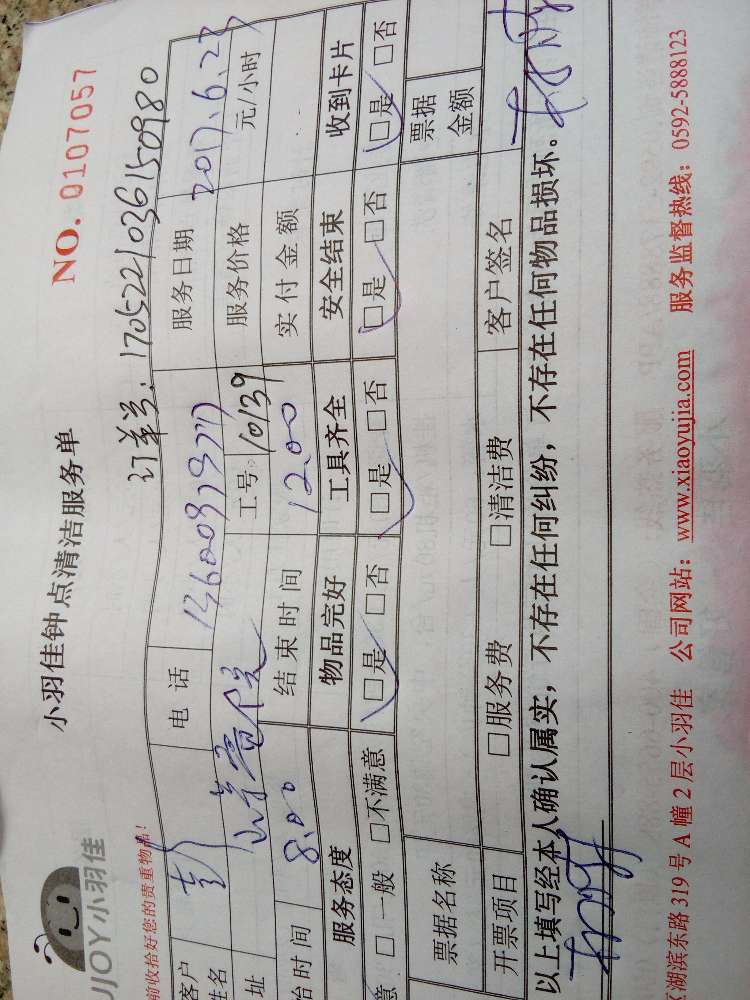 小羽佳钟点清洁服务单
NO. 0107057
JJOY小羽佳
订单号: 1705221036150980
前收拾好您的贵重物品!
客户 彭 电话 服务日期 2017.6.23
姓名 工号 10139 服务价格 元/小时
址
始时间 8.00 结束时间 12.00 实付金额
服务态度 物品完好 工具齐全 安全结束 收到卡片
意 □一般 □不满意 □是 □否 □是 □否 □是 □否 □是 □否
票据名称 票据金额
开票项目 □服务费 □清洁费 客户签名
以上填写经本人确认属实,不存在任何纠纷,不存在任何物品损坏.
湖滨东路319号A幢2层小羽佳 公司网站: www.xiaoyujia.com 服务监督热线: 0592-5888123